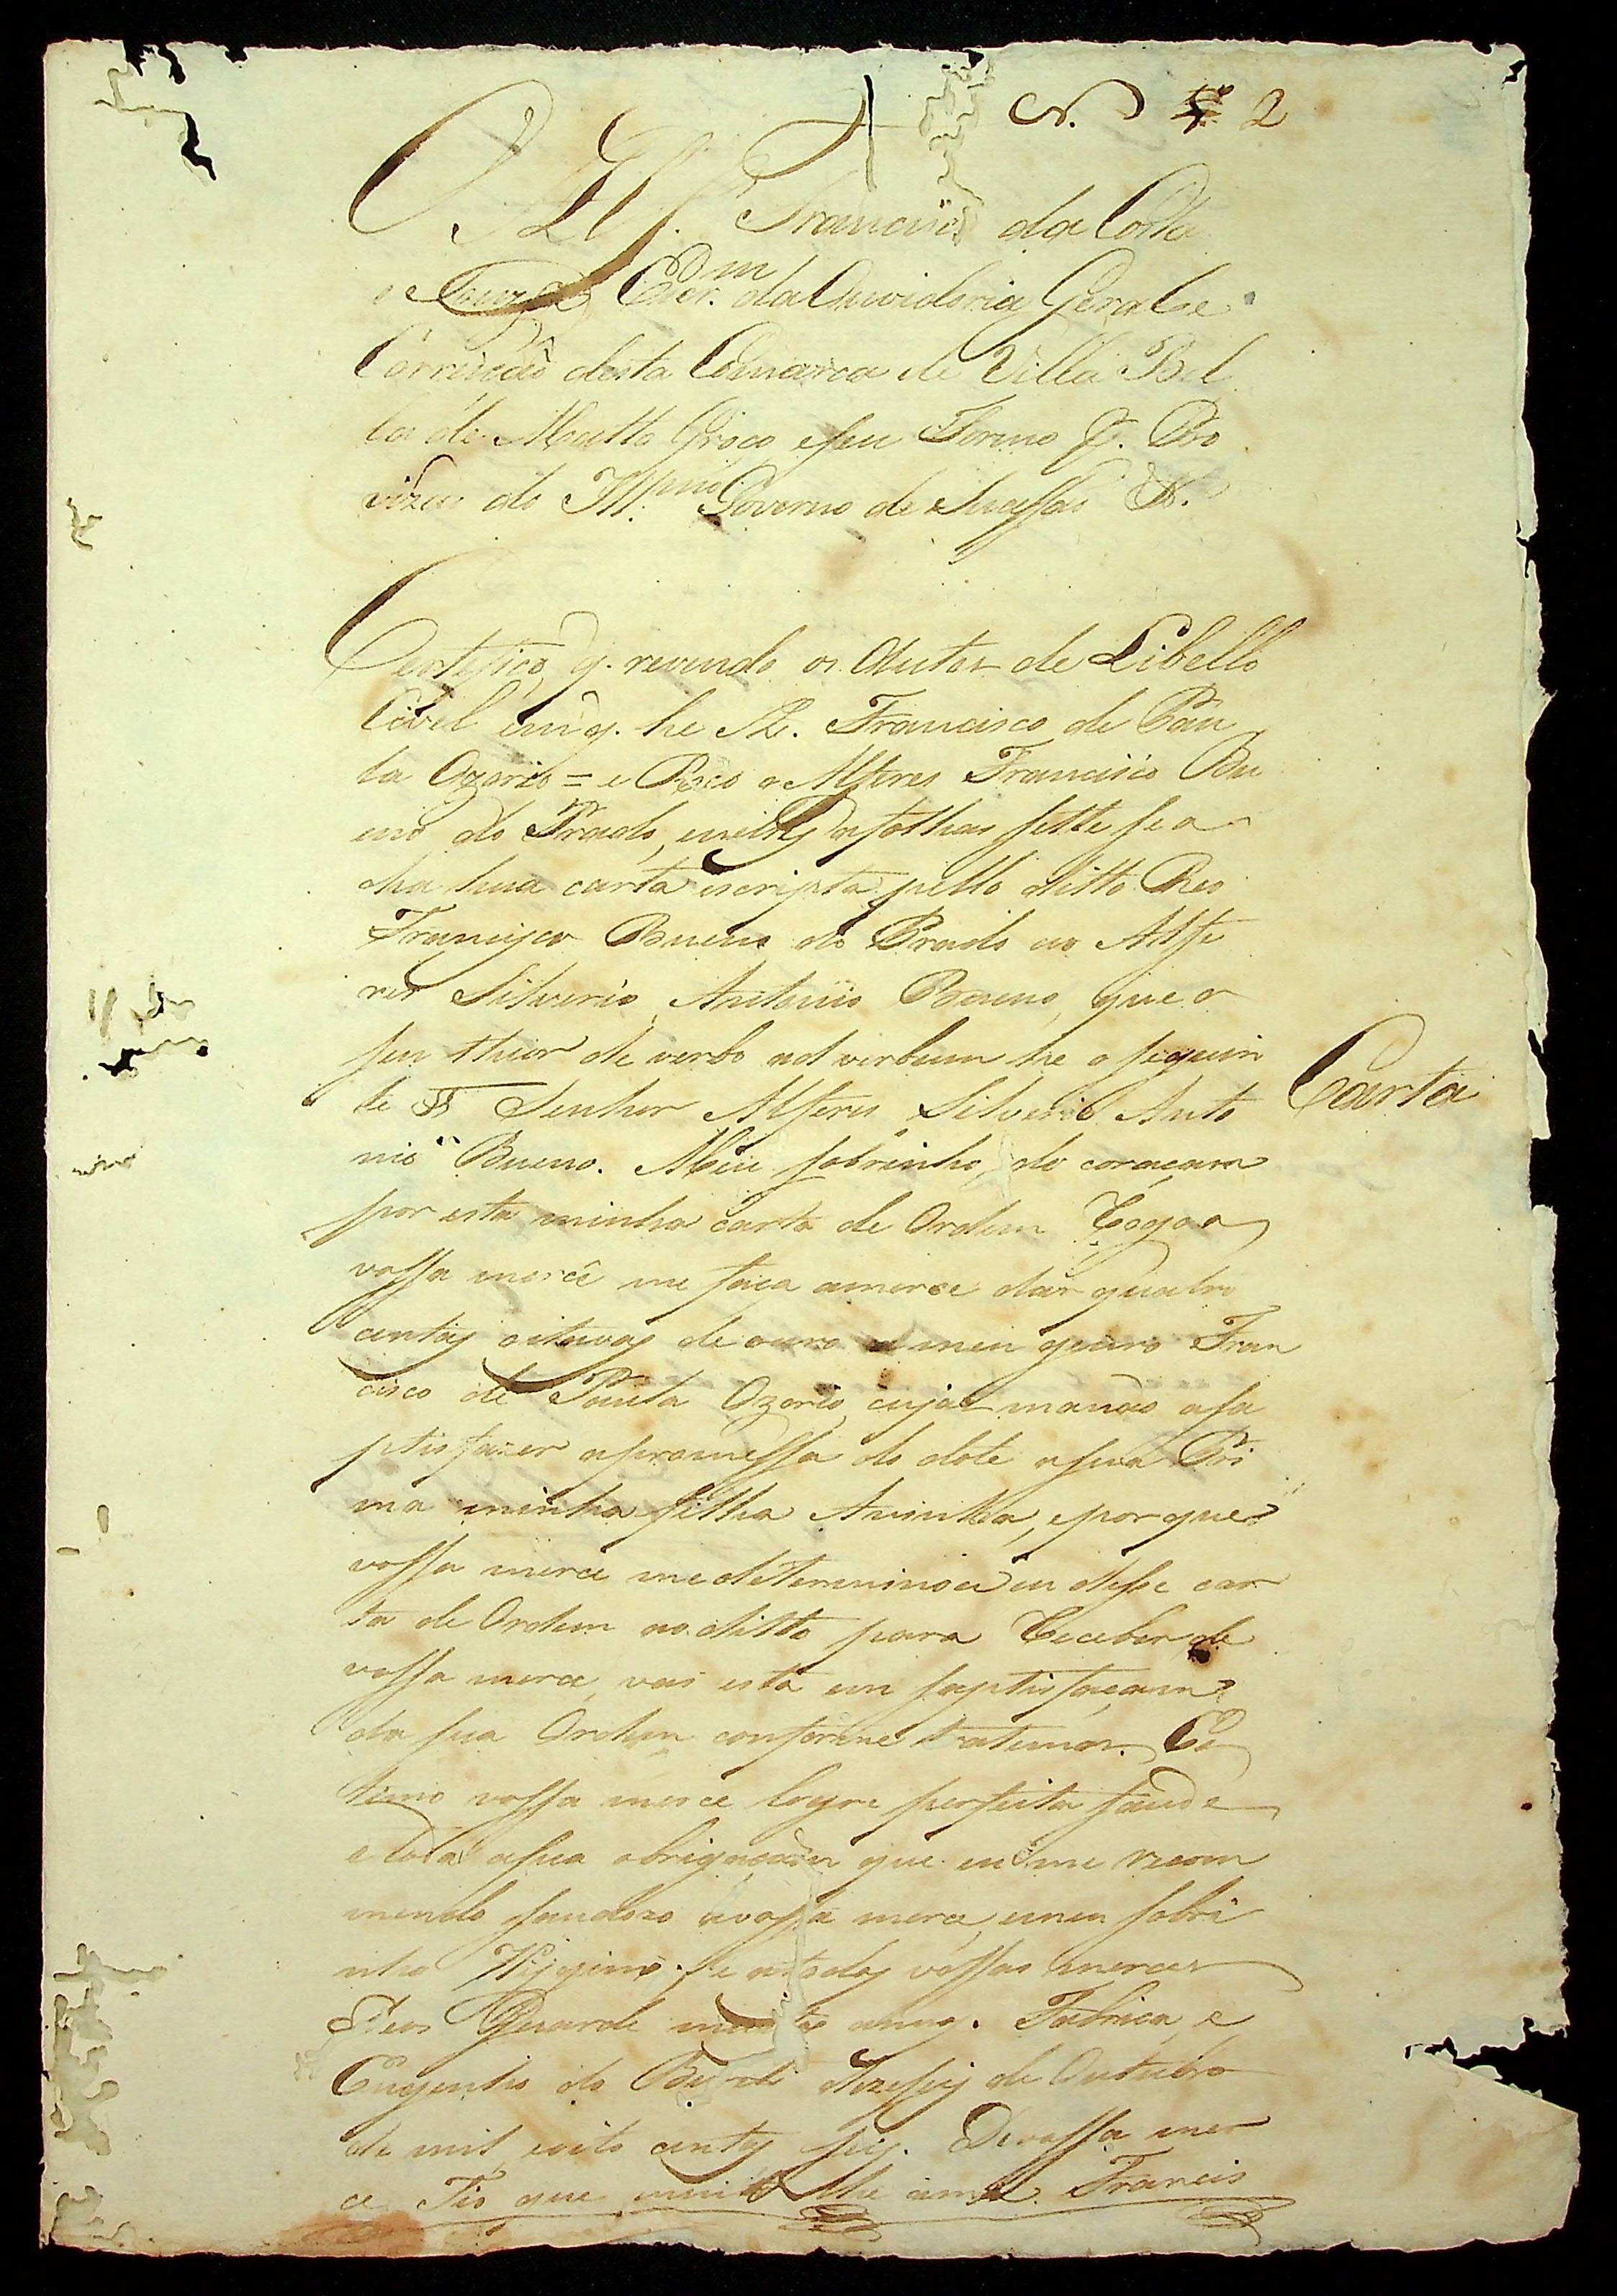 N. 2
Francisco da Costa
e Souza Escr.m da Ouvidoria Geral e
Correição desta Comarca de Villa Bel
la de Matto Groço e seu Termo P. Pro
vizão do Ill.mo Governo de Sucessão &.
Certefico q. revendo os Autos de Libello
Civel em q. he A. Francisco de Pau
la Ozorio = e Reo o Alferes Francisco Bu
eno do Prado, nelles afolhas sette se a
cha hua carta escripta pello ditto Reo
Francisco Bueno do Prado ao Alfe
res Silverio Antonio Bueno, que o
seu theor de verbo ad verbum he o seguin
te Senhor Alferes Silverio Anto
Carta
nio Bueno. Meu sobrinho do coraçam
por esta minha carta de Ordem Rogo a
vossa mercê me faça amerce dar quatro
centas oitavas de ouro a meu genro Fran
cisco de Paula Ozorio, cujas mando asa
ptisfazer apromessa do dote asua Pri
ma minha filha Aninha, eporque
vossa merce medetereminou eu desse car
ta de Ordem ao ditto para Receber de
vossa merce, vai esta em saptisfaçam
da sua Ordem conforme tratemos. Es
timo vossa merce logre perfeita saude
e toda asua obrigaçam que eu me recom
mendo saudozo avossa merce, emeu sobri
nho Hygino. e atodas vossas merces
Deos Guarde muitos annos. Fabrica, e
Engenho do Buriti dezeseis de Outubro
de mil, eoito centos seis. De vossa mer
ce Tio que muito lhe ama. Francis